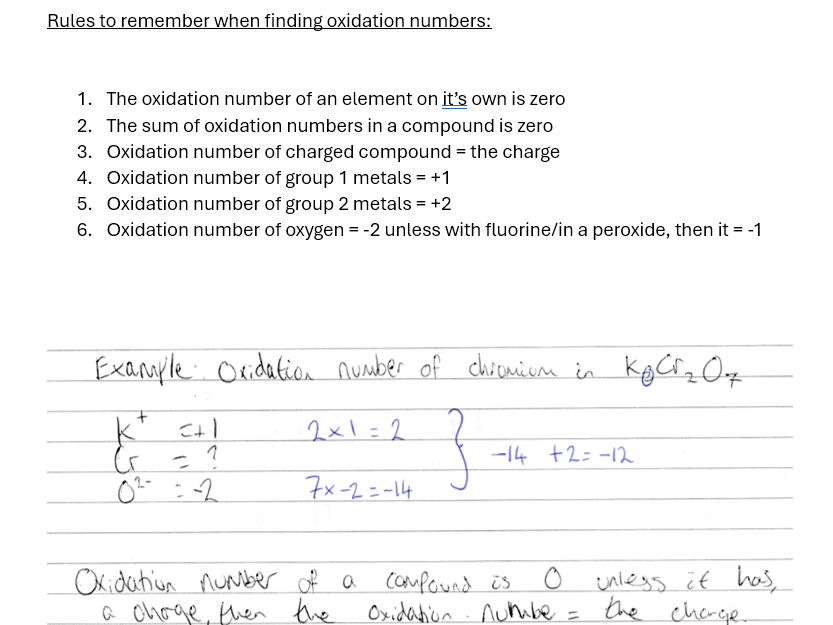 Rules to remember when finding oxidation numbers:
1. The oxidation number of an element on it's own is zero
2. The sum of oxidation numbers in a compound is zero
3. Oxidation number of charged compound = the charge
4. Oxidation number of group 1 metals = +1
5. Oxidation number of group 2 metals = +2
6. Oxidation number of oxygen = -2 unless with fluorine/in a peroxide, then it = -1
Example: Oxidation number of chromium in K₂Cr₂O₇
K⁺ = +1 2×1 = 2
Cr = ? } -14 +2 = -12
O²⁻ = -2 7×-2 = -14
Oxidation number of a compound is 0 unless it has,
a charge, then the oxidation numbe = the charge.